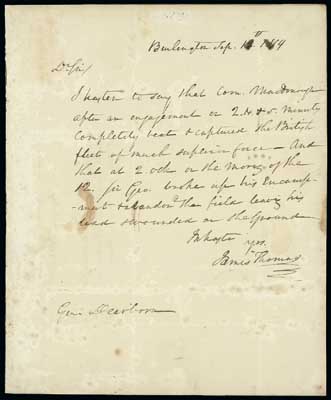 Burlington Sep. 12th 1814
Dr Sir
I hasten to say that Com. Macdonough
after an engagement or 2.H & 5. minuts
Completely beat & captured the British
fleet of much superior force – And
that at 2 oth on the Morng of the
12. Sir Geo. broke up his Encamp-
ment & abandond the field leavg his
dead & wounded on the Ground
In haste yrs.
James Thomas
Gen. Dearborn